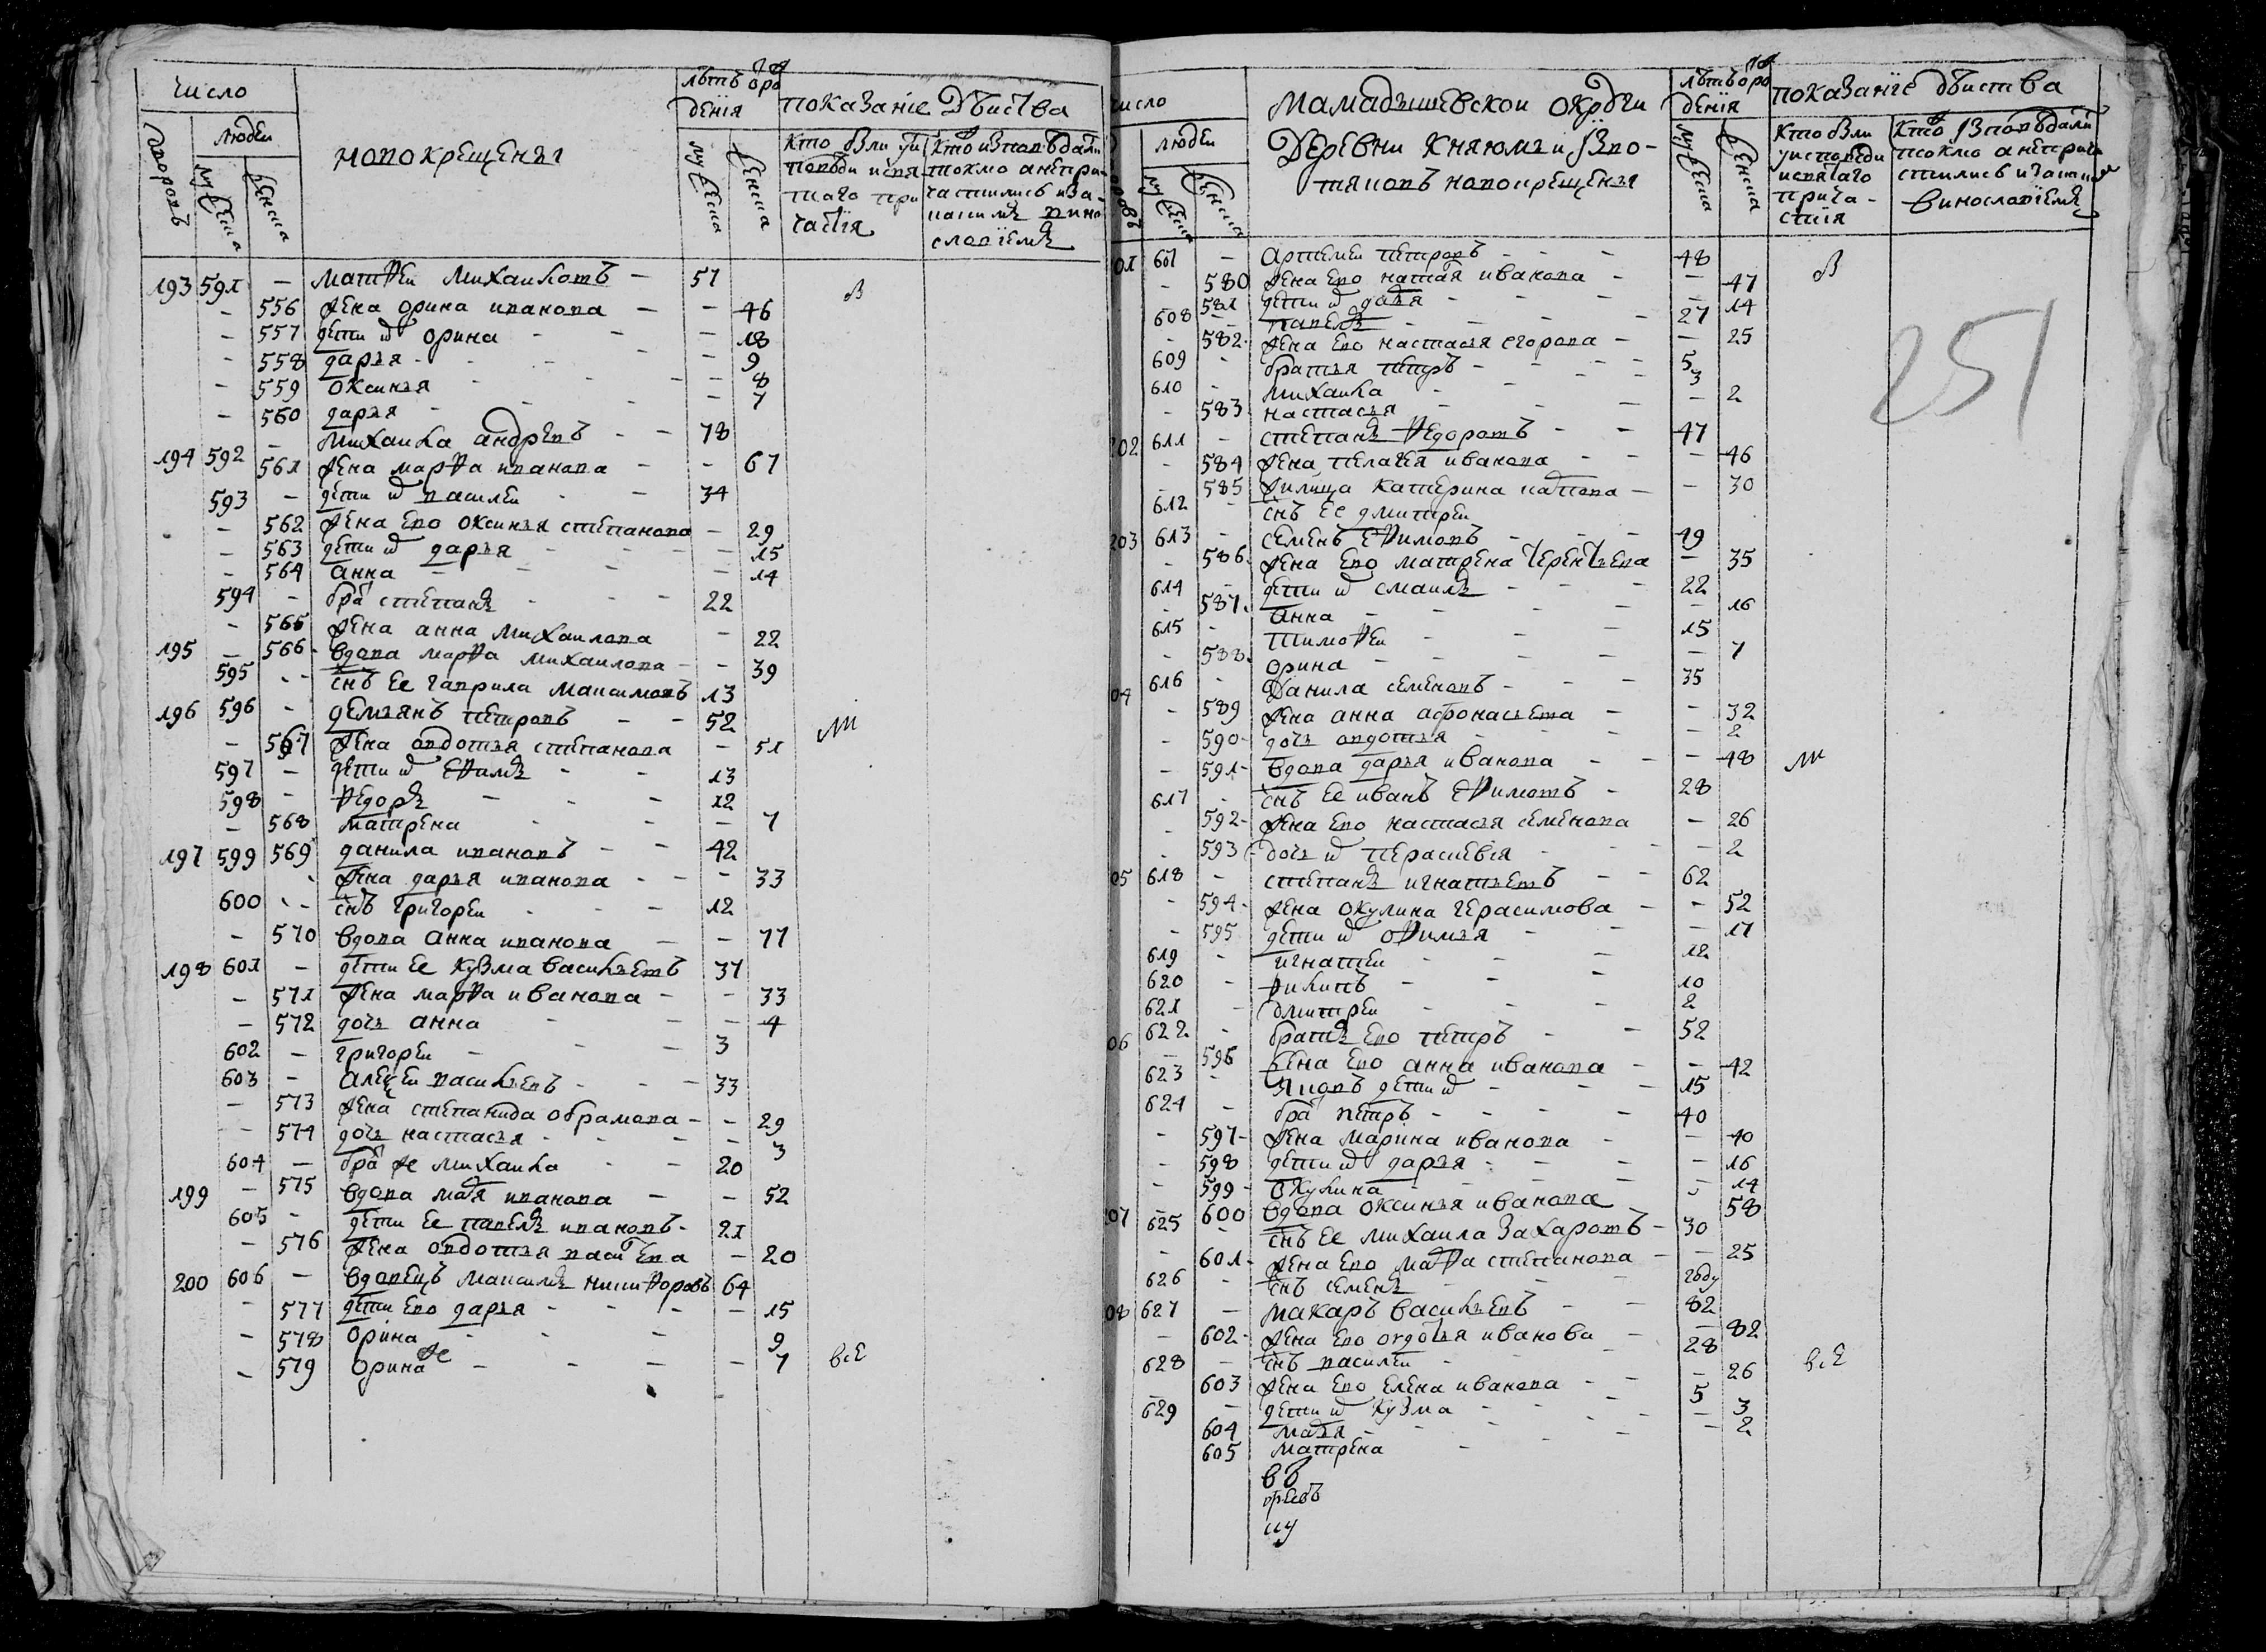 число
летъ орож
дения
показание действа
дворовъ
людеи
мужеска
женска
новокрещены
мужеска
женска
кто были у ис
поведи и свя
таго при
частия
кто исповедали
токмо а не при
частились и за
каким
винословiемъ
193 591 — матфеи михаилотъ — 57
— 556 жена орина иванова — — 46
— 557 дети их орина — — 18
— 558 дарья — — 9
— 559 оксинья — — 8
— 560 дарья — — 7
194 592 — михаила андревъ — 78
561 жена марфа иванова — — 67
593 — дети их василеи — 34
— 562 жена ево оксинья степанова — 29
— 563 дети их дарья — — 15
— 564 анна — — 14
594 — бра степанъ — 22
— 565 жена анна михаилова — 22
195 — 566 вдова марфа михаилова — — 39
595 — снъ ее гаврила максимовъ 13
196 596 — демьянъ петровъ — 52
— 567 жена овдотья степанова — 51
597 — дети их ефимъ — 13
598 — федоръ — 12
— 568 матрена — — 7
197 599 569 данила ивановъ — 42
жена дарья иванова — — 33
600 — снъ григореи — 12
— 570 вдова анна иванова — — 77
198 601 — дети ее кузма васильетъ 37
— 571 жена марфа иванова — — 33
— 572 дочь анна — — 4
602 — григореи — 3
603 — алеѯеи васильевъ — 33
— 573 жена степанида обрамова — — 29
— 574 дочь настасья — — 3
604 — бра же михаила — 20
199 — 575 вдова мавя иванова — — 52
605 — дети ее павелъ ивановъ 21
— 576 жена овдотья васиева — 20
200 606 — вдовецъ максимъ никифоровъ 64
— 577 дети ево дарья — — 15
— 578 орина — 9
— 579 орина же — — 7
все
число
людеи
мужеска
женска
мамадышевскои округи
деревни княюмги изво-
тяковъ новокрещеня
летъ орож
дения
мужеска
женска
показанiе действа
кто были
у исповеди
и святаго
прича-
стия
кто исповедали
токмо а не прича
стились и за каким
винословiемъ
251
01 607 — артемеи петровъ — 48
— 580 жена ево натая иванова — — 47
581 дети их дарья — — 14
608 — павелъ — 27
— 582 жена ево настасья егорова — — 25
609 — братья петръ — 5
610 — михаила — 3
— 583 настасья — — 2
202 611 — степанъ федоротъ — 47
— 584 жена пелагея иванова — — 46
— 585 филица катерина — — 30
612 — снъ ее дмитреи
203 613 — семенъ ефимовъ — 49
— 586 жена ево матрена терентьева — 35
614 — дети их смаилъ — 22
— 587 анна — — 16
615 — тимофеи — 15
— 588 орина — — 7
04 616 — данила семеновъ — 35
— 589 жена анна афонасьета — — 32
— 590 дочь овдотья — — 2
— 591 вдова дарья иванова — — 48
617 — снъ ее иванъ ефимотъ — 28
— 592 жена ево настасья семенова — 26
— 593 дочь их перасневiя — — 2
05 618 — степанъ игнатьетъ — 62
— 594 жена окулина герасимова — — 52
— 595 дети их офимья — — 17
619 — игнатеи — 12
620 — филипъ — 10
621 — дмитреи — 2
06 622 — братъ ево петръ — 52
— 596 жена ево анна иванова — — 42
623 — яковъ дети их — 15
624 — бра петръ — 40
— 597 жена марина иванова — — 40
— 598 дети их дарья — — 16
— 599 окулина — — 14
207 — 600 вдова оксинья иванова 58
625 — снъ ее михаила захаротъ — 30
— 601 жена ево мафа степанова — — 25
626 — снъ семенъ — году
08 627 — макаръ васильевъ — 82
— 602 жена ево овдотья иванова — — 82
628 — снъ василеи — 28
603 жена ево елена иванова — — 26
629 — дети их кузма — 5
604 мавя — — 3
605 матрена — — 2
все